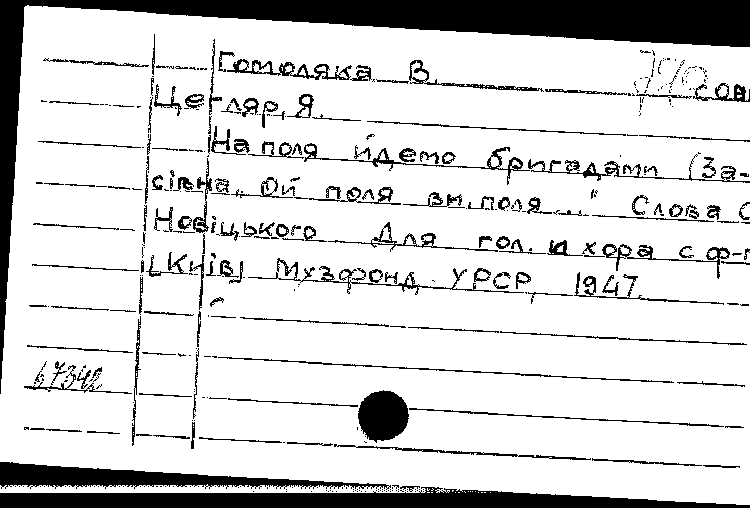 Гомоляка В. сов
Цегляр, Я.
На поля йдемо бригадами (За-
сівна „Ой поля ви, поля ..." Слова О
Новіцького Для гол. и хора с ф-п
[Київ] Музфонд УРСР, 1947.
67342